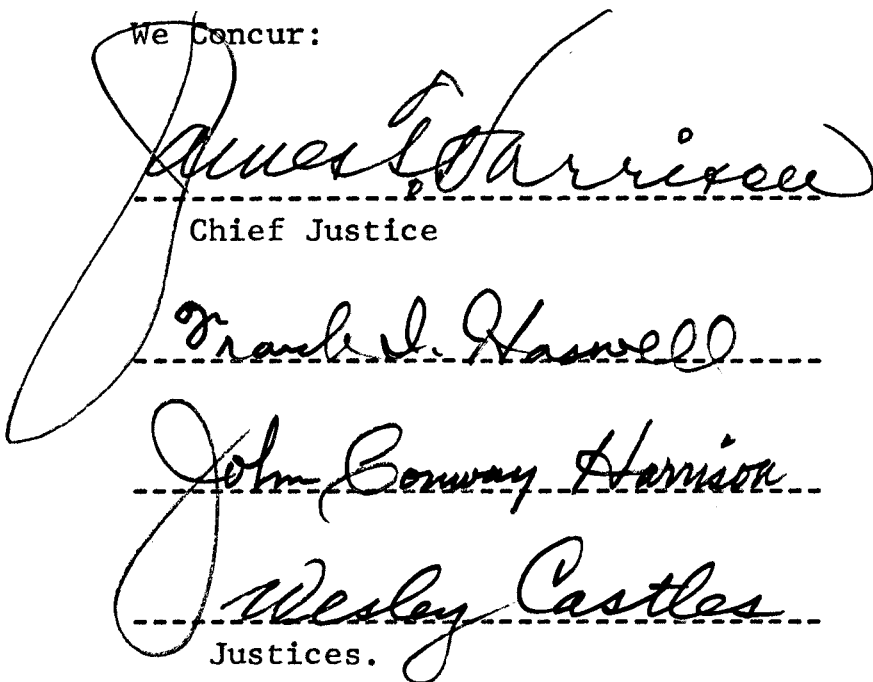 We Concur:
James T. Harrison
Chief Justice
Frank I. Haswell
John Conway Harrison
Wesley Castles
Justices.